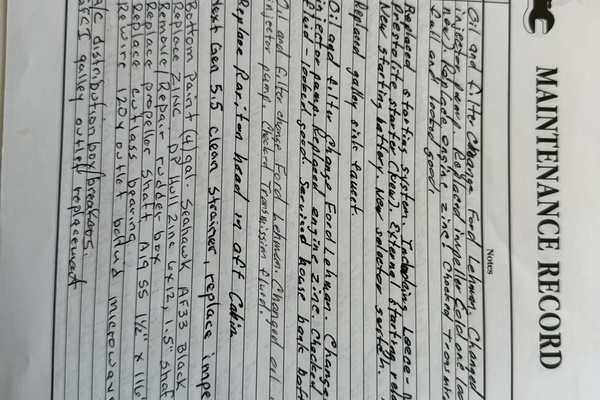 MAINTENANCE RECORD
Notes
Oil and filter change Ford Lehman, Changed
injector pump. Replaced impeller (old one loo
new). Replace engine zinc. Checked transmiss
fluid and looked good
Replaced starting system Including Leece-
prestolite starter (new) External starting rel
New starting battery. New selector switch.
Replaced galley sink faucet.
Oil and filter Change Ford Lehman. Change
injector pump. Replaced engine zinc, checked
fluid - looked good Serviced house bank batt
Oil and filter change Ford Lehman. Changed oil
injector pump. Checked Transmission fluid.
Replace Raritan head in aft Cabin
Next Gen 5.5 clean Strainer, replace impe
Bottom Paint (4 gal. Seahawk AF33 Black
Replace ZINC. DP Hull zinc 6x12, 1.5" Shaf
Remove/Repair rudder box
Replace propeller Shaft A19 SS 1½" x 116"
Replace cutlass bearing
Rewire 120v outlet behind microwave
A/C distribution box/breakers.
GFCI galley outlet replacement